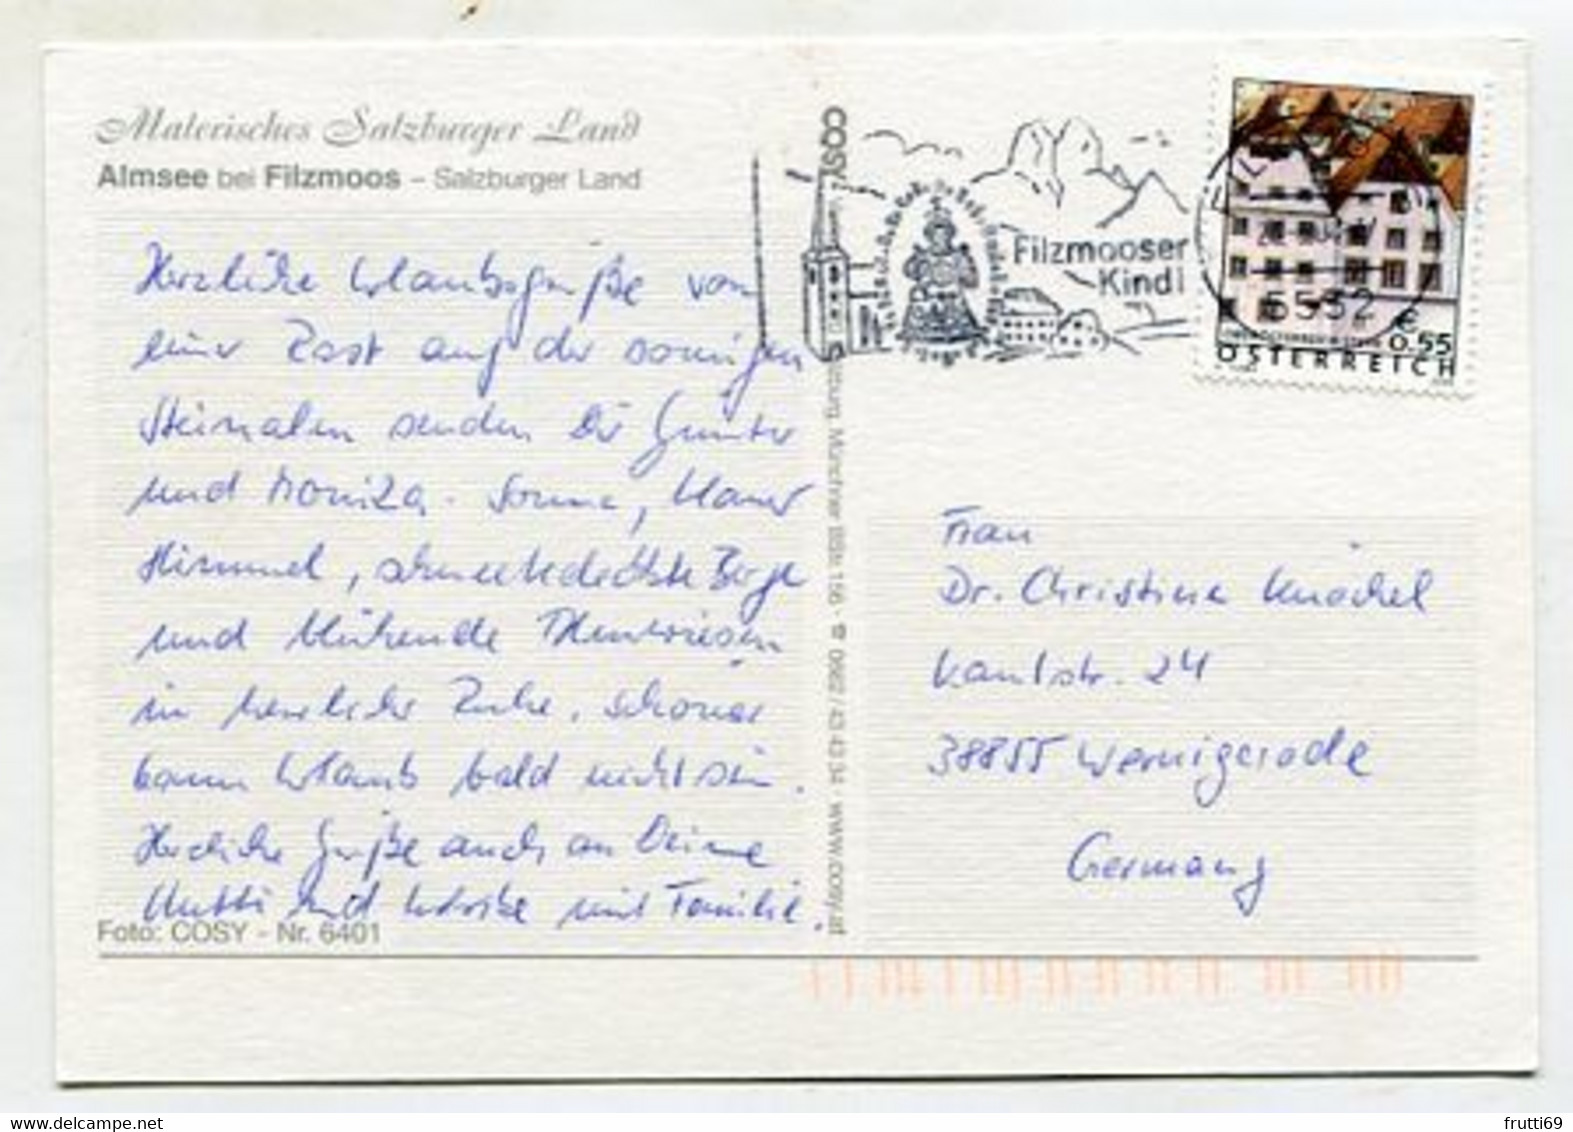 Malerisches Salzburger Land
Almsee bei Filzmoos – Salzburger Land
Herzliche Urlaubsgrüße von
einer Rast auf der sonnigen
Steinalm senden Dir Günter
und Monika. Sonne, blauer
Himmel, schneebedeckte Berge
und blühende Blumenwiesen
in herrlicher Ruhe, schöner
kann Urlaub bald nicht sein.
Herzliche Grüße auch an Deine
Mutti und mit Familie.
Foto: COSY - Nr. 6401
COSY Salzburg, Münchner BStr. 156 · 0662 / 43 43 34 www.cosy.at
Filzmooser
Kindl
5532
€
0.55
ÖSTERREICH
Frau
Dr. Christina Knöchel
Kantstr. 24
38855 Wernigerode
Germany
frutti69